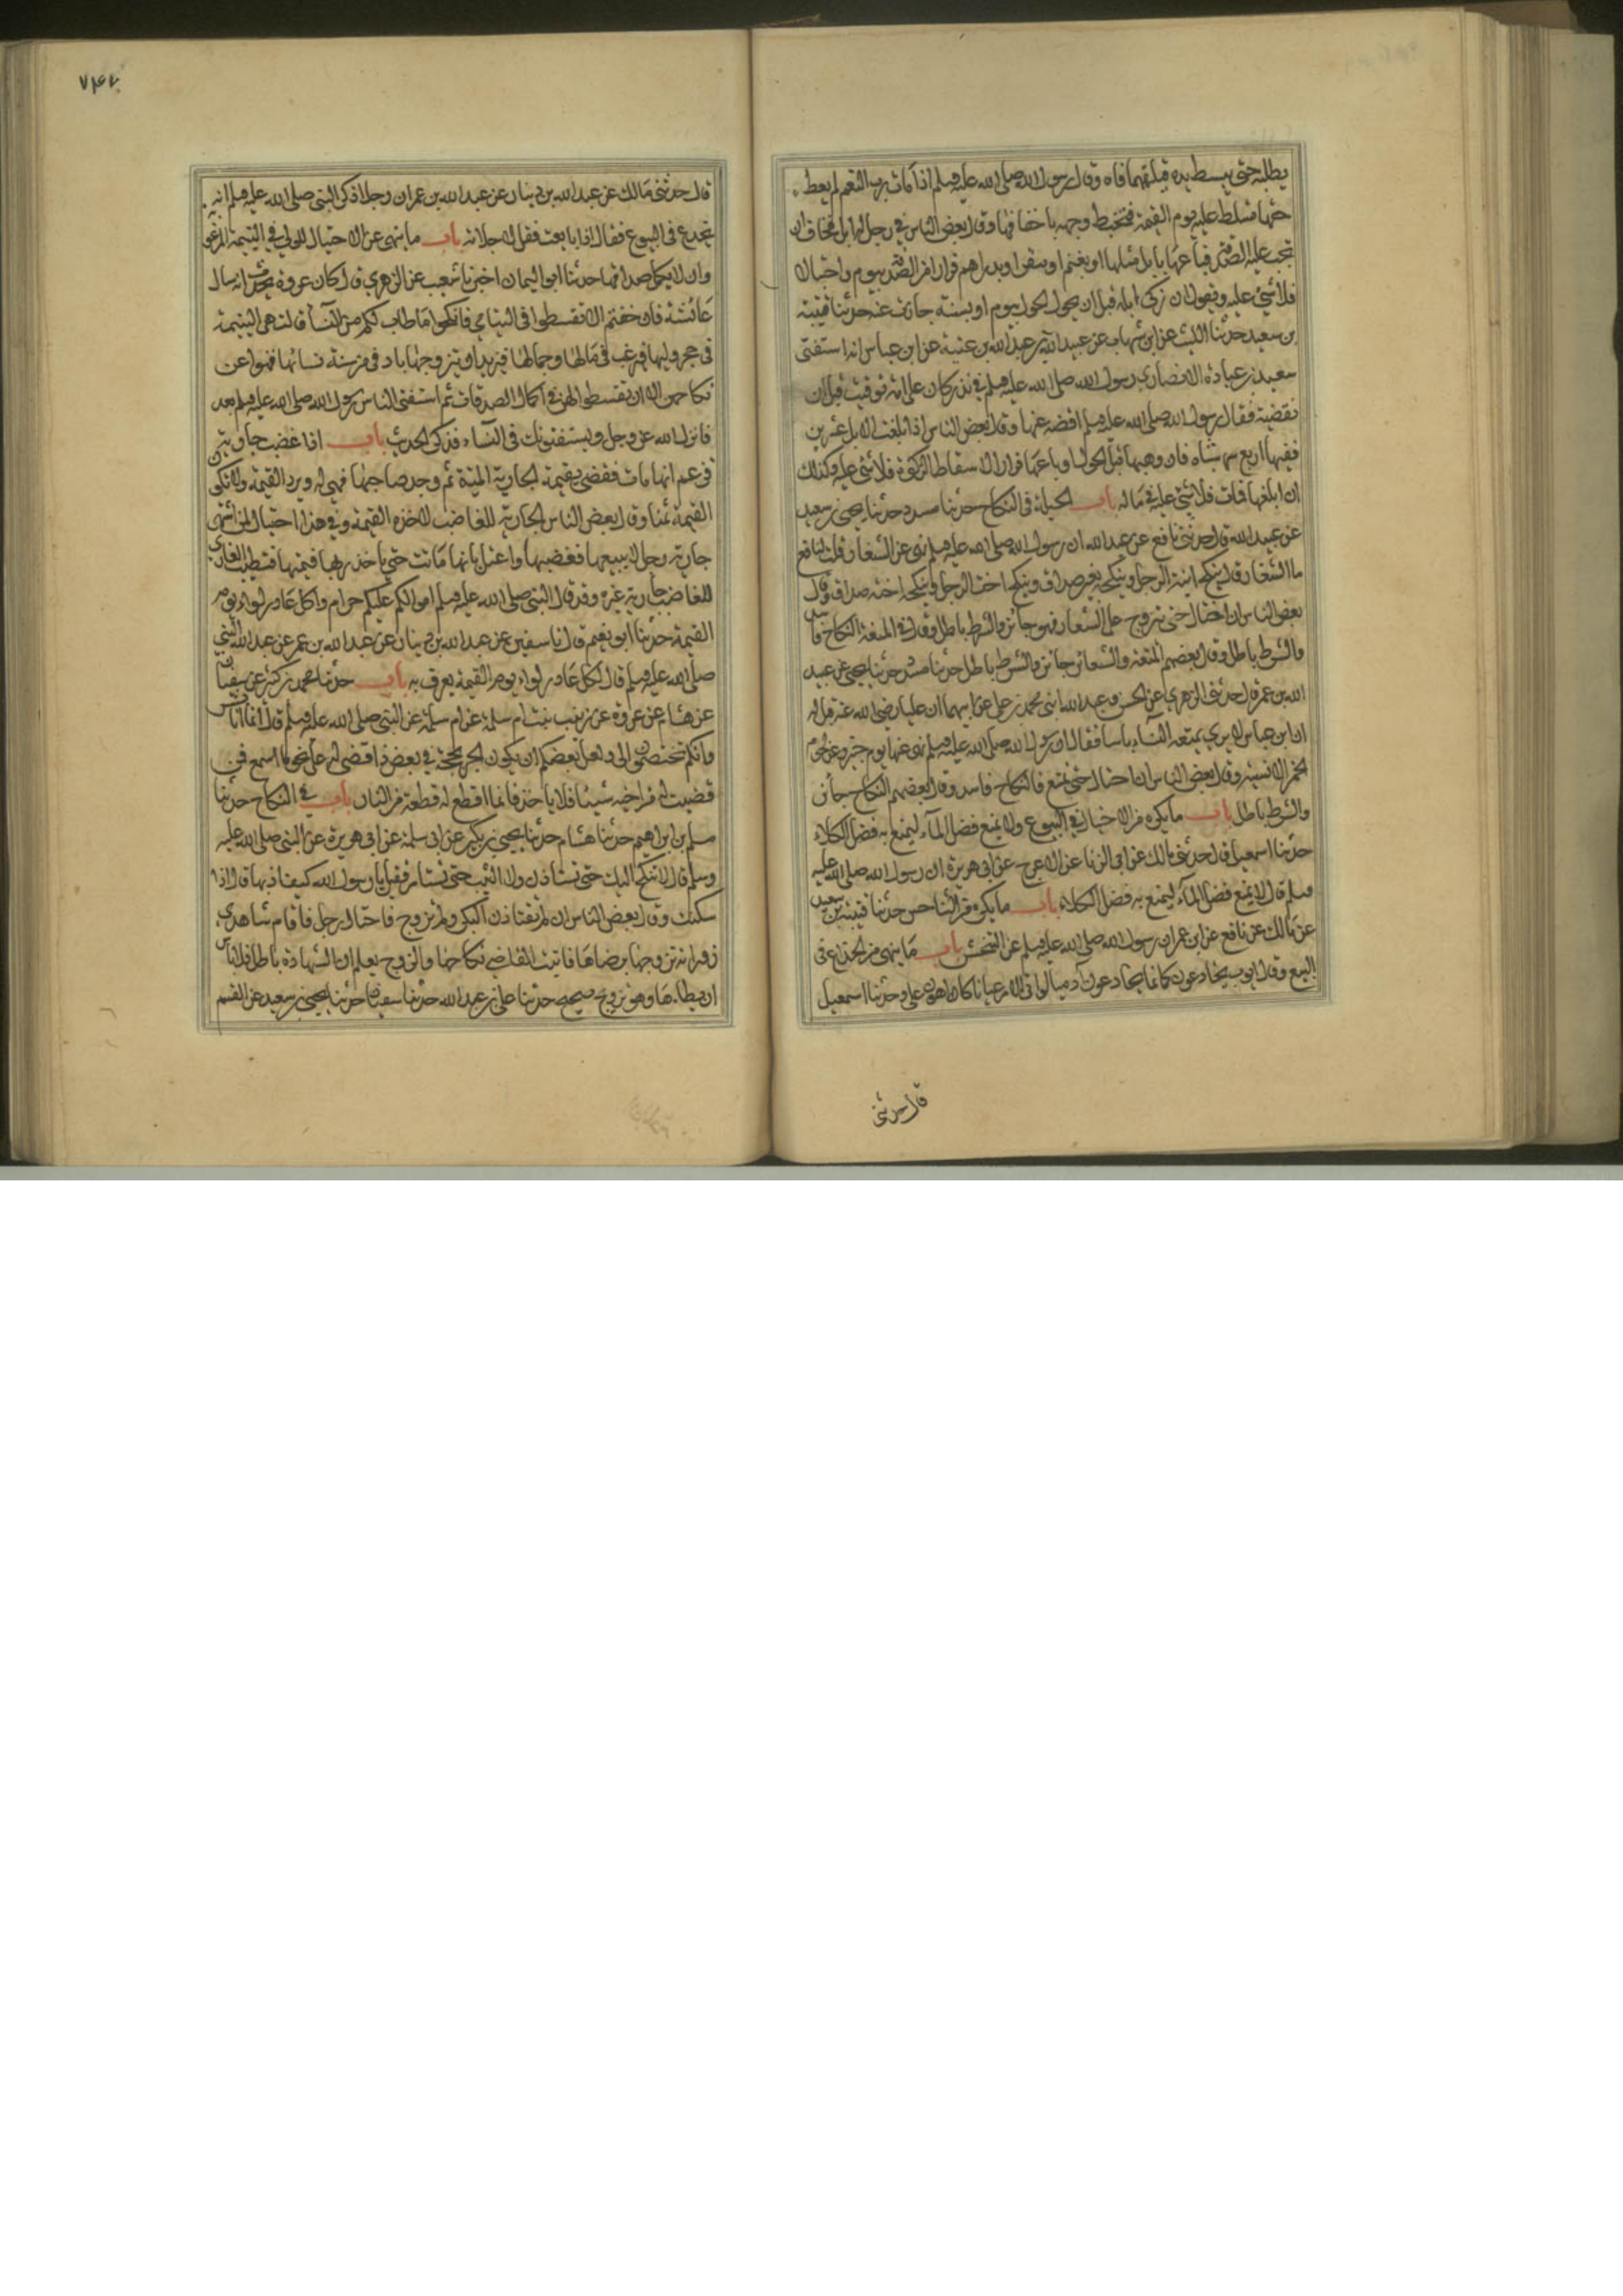 يطلبه حتى يبسط يده فيلقمها فاه وقال رسول الله صلى الله عليه وسلم اذا مات رب النعم لم يعط
حقها تسلط عليه يوم القيمة فتخبط وجهه باخفافها وقال بعض الناس في رجل له ابل فخاف ان
تجب عليه الصدقة فباعها بابل مثلها او بغنم او ببقر او بدراهم فرارا من الصدقة بيوم واحتيالا
فلا شئ عليه وهو يقول ان زكى ابله قبل ان يحول الحول بيوم او بسنة جازت عنه حدثنا قتيبة
بن سعيد حدثنا الليث عن ابن شهاب عن عبيد الله بن عبد الله بن عتبة عن ابن عباس انه استفتى
سعد بن عبادة الانصاري رسول الله صلى الله عليه وسلم في نذر كان على امه توفيت قبل ان
تقضيه فقال رسول الله صلى الله عليه وسلم اقضه عنها وقال بعض الناس اذا بلغت الابل عشرين
ففيها اربع شياه فان وهبها قبل الحول او باعها فرارا لاسقاط الزكوة فلا شئ عليه وكذلك
ان اتلفها فمات فلا شئ عليه في ماله باب الحيلة في النكاح حدثنا مسدد حدثنا يحيى بن سعيد
عن عبيد الله قال حدثني نافع عن عبد الله ان رسول الله صلى الله عليه وسلم نهى عن الشغار قلت لنافع
ما الشغار قال ينكح ابنة الرجل وينكحه بغير صداق وينكح اخت الرجل وينكحه اخته صداق وقال
بعض الناس ان احتال حتى تزوج على الشغار فهو جائز والشرط باطل وقال في المتعة النكاح فاسد
والشرط باطل وقال بعضهم المتعة والشغار جائز والشرط باطل حدثنا مسدد حدثنا يحيى عن عبيد
الله بن عمر قال حدثني الزهري عن الحسن وعبد الله ابني محمد بن علي عن ابيهما ان عليا رضي الله عنه قيل له
ان ابن عباس لا يرى بمتعة النساء باسا فقال ان رسول الله صلى الله عليه وسلم نهى عنها يوم خيبر وعن لحوم
الحمر الانسية وقال بعض الناس ان احتال حتى تمتع فالنكاح فاسد وقال بعضهم النكاح جائز
والشرط باطل باب ما يكره من الاحتيال في البيوع ولا يمنع فضل الماء ليمنع به فضل الكلاء
حدثنا اسمعيل قال حدثني مالك عن ابي الزناد عن الاعرج عن ابي هريرة ان رسول الله صلى الله عليه
وسلم قال لا يمنع فضل الماء ليمنع به فضل الكلاء باب ما يكره من التناجش حدثنا قتيبة بن سعيد
عن مالك عن نافع عن ابن عمر ان رسول الله صلى الله عليه وسلم عن النجش باب ما ينهى من الخداع في
البيع وقال ايوب يخادعون كانما يخادعون ادميا لو اتوا الامر عيانا كان اهون علي حدثنا اسمعيل
قال حدثني
٧٤٧
قال حدثني مالك عن عبد الله بن دينار عن عبد الله بن عمر ان رجلا ذكر للنبي صلى الله عليه وسلم انه
يخدع في البيوع فقال اذا بايعت فقل لا خلابة باب ما ينهى عن الاحتيال للولي في اليتيمة المرغوبة
وان لا يكمل صداقها حدثنا ابو اليمان اخبرنا شعيب عن الزهري قال كان عروة يحدث انه سال
عائشة فان خفتم الا تقسطوا في اليتامى فانكحوا ما طاب لكم من النساء قالت هي اليتيمة
في حجر وليها فيرغب في مالها وجمالها فيريد ان يتزوجها بادنى من سنة نسائها فنهوا عن
نكاحهن الا ان تقسطوا لهن في اكمال الصداق ثم استفتى الناس رسول الله صلى الله عليه وسلم بعد
فانزل الله عز وجل ويستفتونك في النساء فذكر الحديث باب اذا غصب جارية
فزعم انها ماتت فقضي بقيمة الجارية الميتة ثم وجدها صاحبها فهي له ويرد القيمة ولا تكون
القيمة ثمنا وقال بعض الناس الجارية للغاصب لاخذه القيمة وفي هذا احتيال لمن اشتهى
جارية رجل لا يبيعها فغصبها واعتل بانها ماتت حتى ياخذ ربها قيمتها فتطيب
للغاصب جارية غيره وقد قال النبي صلى الله عليه وسلم اموالكم عليكم حرام ولكل غادر لواء يوم
القيمة حدثنا ابو نعيم قال نا سفين عن عبد الله بن دينار عن عبد الله بن عمر عن النبي
صلى الله عليه وسلم قال لكل غادر لواء يوم القيمة يعرف به باب حدثنا محمد بن كثير عن سفيان
عن هشام عن عروة عن زينب بنت ام سلمة عن ام سلمة عن النبي صلى الله عليه وسلم قال انما انا بشر
وانكم تختصمون الي ولعل بعضكم ان يكون الحن بحجته من بعض فاقضي له على نحو ما اسمع فمن
قضيت له من اخيه شيئا فلا ياخذ فانما اقطع له قطعة من النار باب في النكاح حدثنا
مسلم بن ابراهيم حدثنا هشام حدثنا يحيى بن بكير عن ابي سلمة عن ابي هريرة عن النبي صلى الله عليه
وسلم قال لا تنكح البكر حتى تستاذن ولا الثيب حتى تستامر فقيل يا رسول الله كيف اذنها قال اذا
سكتت وقال بعض الناس ان لم تستاذن البكر ولم تزوج فاحتال رجل فاقام شاهدي
زور انه تزوجها برضاها فاثبت القاضي نكاحها والزوج يعلم ان الشهادة باطل فلا باس
ان يطاها وهو تزويج صحيح حدثنا علي بن عبد الله حدثنا سفيان حدثنا يحيى بن سعيد عن القسم